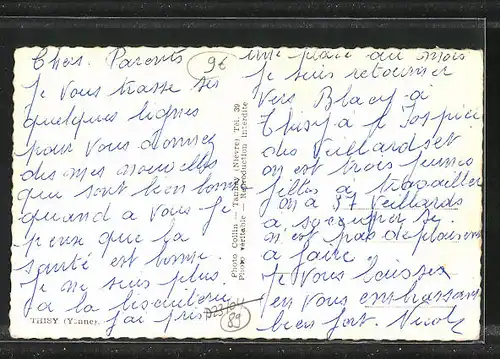 Chers Parents
Je vous trasse ses
quelques lignes
pour vous donnez
des mes nouvelles
qui sont bien bonne
quand a vous je
pense que la
santé est bonne.
Je ne suis plus
a la biscuiterie
j'ai pris
THISY (Yonne).
9€
Photo Collin — Tannay (Nièvre) Tél. 39
Photo véritable — Reproduction interdite
89
une place au mois
je suis retourner
vers Blacy à
Thisy à l'ospice
des vieillards et
on est trois jeunes
filles a travailler
on a 37 vieillards
a soccuper se
n'est pas de plaisans
a faire
Je vous laisses
en vous embrassant
bien fort. Nicole